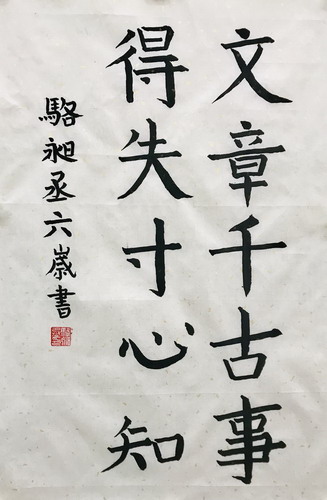 文章千古事
得失寸心知
駱昶丞六歲書